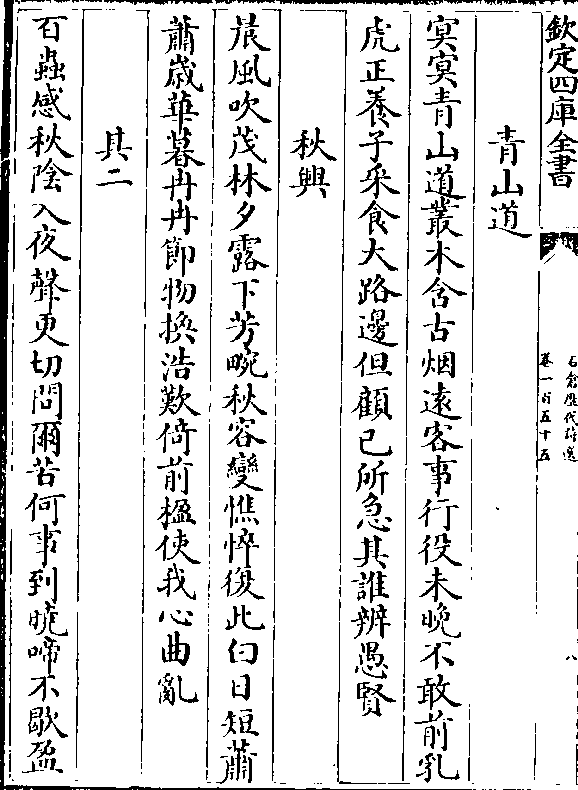 欽定四庫全書
石倉歷代詩選
卷一百五十五
八
青山道
冥冥青山道叢木含古烟遠客事行役未晚不敢前乳
虎正養子采食大路邊但顧已所急其誰辨愚賢
秋興
晨風吹茂林夕露下芳畹秋容變憔悴復此白日短蕭
蕭歲華暮冉冉節物換浩歎倚前楹使我心曲亂
其二
百蟲感秋陰入夜聲更切問爾苦何事到曉啼不歇盈